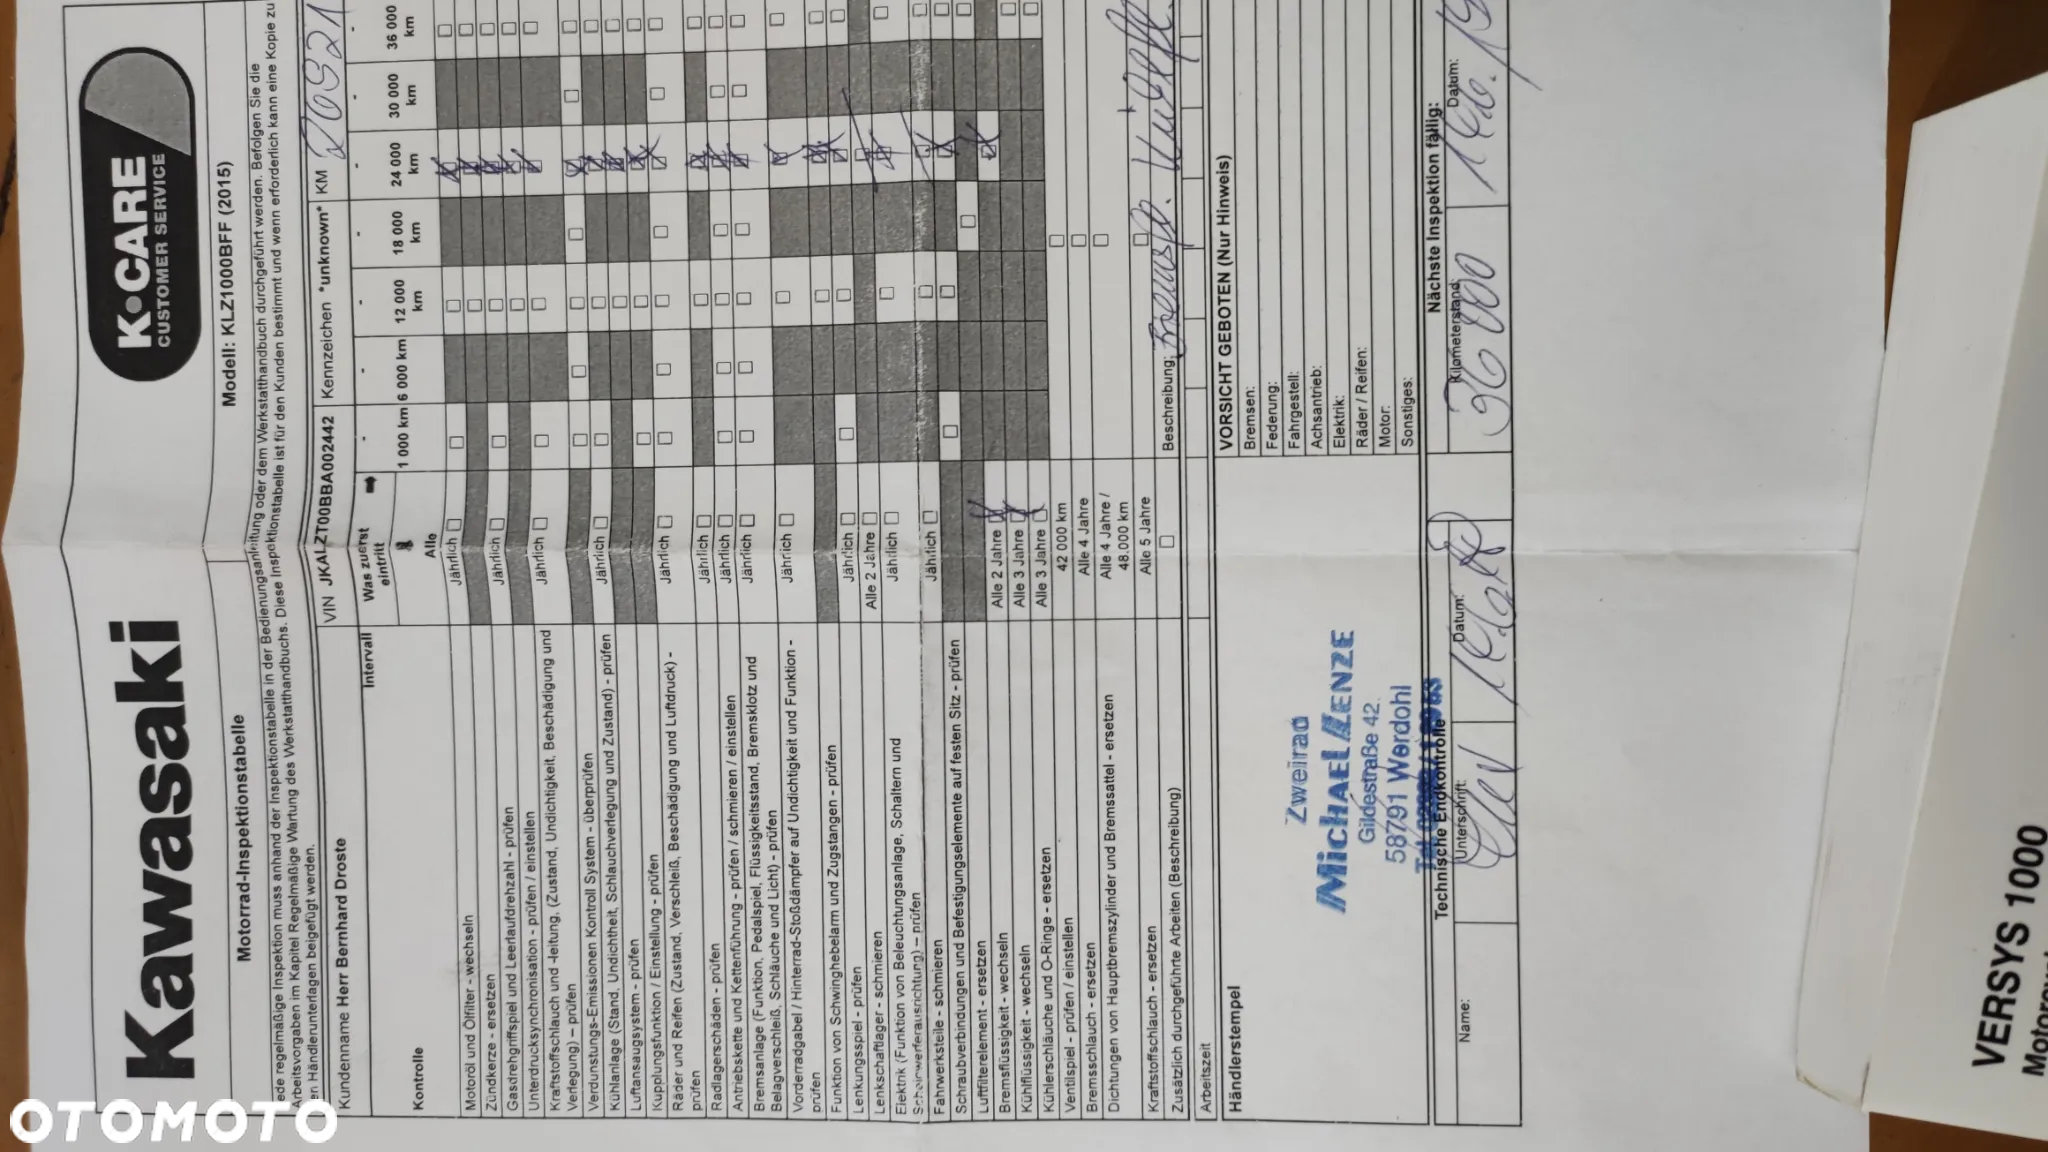 Kawasaki
K•CARE
CUSTOMER SERVICE
Motorrad-Inspektionstabelle
Modell: KLZ1000BFF (2015)
ede regelmäßige Inspektion muss anhand der Inspektionstabelle in der Bedienungsanleitung oder dem Werkstatthandbuch durchgeführt werden. Befolgen Sie die
Arbeitsvorgaben im Kapitel Regelmäßige Wartung des Werkstatthandbuchs. Diese Inspektionstabelle ist für den Kunden bestimmt und wenn erforderlich kann eine Kopie zu
en Händlerunterlagen beigefügt werden.
Kundenname Herr Bernhard Droste
VIN JKALZT00BBA002442
Kennzeichen *unknown*
KM
Intervall
Was zuerst eintritt
Kontrolle
Alle
1 000 km
6 000 km
12 000 km
18 000 km
24 000 km
30 000 km
36 000 km
Motoröl und Ölfilter - wechseln Jährlich
Zündkerze - ersetzen
Gasdrehgriffspiel und Leerlaufdrehzahl - prüfen Jährlich
Unterdrucksynchronisation - prüfen / einstellen
Kraftstoffschlauch und -leitung, (Zustand, Undichtigkeit, Beschädigung und
Verlegung) – prüfen Jährlich
Verdunstungs-Emissionen Kontroll System - überprüfen
Kühlanlage (Stand, Undichtheit, Schlauchverlegung und Zustand) - prüfen Jährlich
Luftansaugsystem - prüfen
Kupplungsfunktion / Einstellung - prüfen
Räder und Reifen (Zustand, Verschleiß, Beschädigung und Luftdruck) -
prüfen Jährlich
Radlagerschäden - prüfen Jährlich
Antriebskette und Kettenführung - prüfen / schmieren / einstellen Jährlich
Bremsanlage (Funktion, Pedalspiel, Flüssigkeitsstand, Bremsklotz und
Belagverschleiß, Schläuche und Licht) - prüfen Jährlich
Vorderradgabel / Hinterrad-Stoßdämpfer auf Undichtigkeit und Funktion -
prüfen Jährlich
Funktion von Schwinghebelarm und Zugstangen - prüfen
Lenkungsspiel - prüfen Jährlich
Lenkschaftlager - schmieren Alle 2 Jahre
Elektrik (Funktion von Beleuchtungsanlage, Schaltern und
Scheinwerferausrichtung) – prüfen Jährlich
Fahrwerksteile - schmieren Jährlich
Schraubverbindungen und Befestigungselemente auf festen Sitz - prüfen
Luftfilterelement - ersetzen
Bremsflüssigkeit - wechseln Alle 2 Jahre
Kühlflüssigkeit - wechseln Alle 3 Jahre
Kühlerschläuche und O-Ringe - ersetzen Alle 3 Jahre
Ventilspiel - prüfen / einstellen 42 000 km
Bremsschlauch - ersetzen Alle 4 Jahre
Dichtungen von Hauptbremszylinder und Bremssattel - ersetzen Alle 4 Jahre /
48.000 km
Kraftstoffschlauch - ersetzen Alle 5 Jahre
Zusätzlich durchgeführte Arbeiten (Beschreibung)
Beschreibung:
Arbeitszeit
Händlerstempel
Zweirad
MICHAEL
Gildestraße 42
58791 Werdohl
VORSICHT GEBOTEN (Nur Hinweis)
Bremsen:
Federung:
Fahrgestell:
Achsantrieb:
Elektrik:
Räder / Reifen:
Motor:
Sonstiges:
Technische Endkontrolle
Nächste Inspektion fällig:
Name:
Unterschrift:
Datum:
Kilometerstand:
36000
Datum:
VERSYS 1000
OTOMOTO